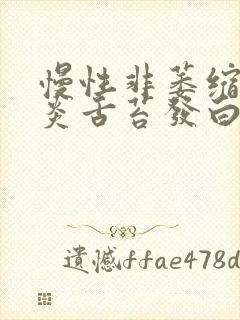 慢性非萎缩
炎舌苔發白
遺憾ffae478d